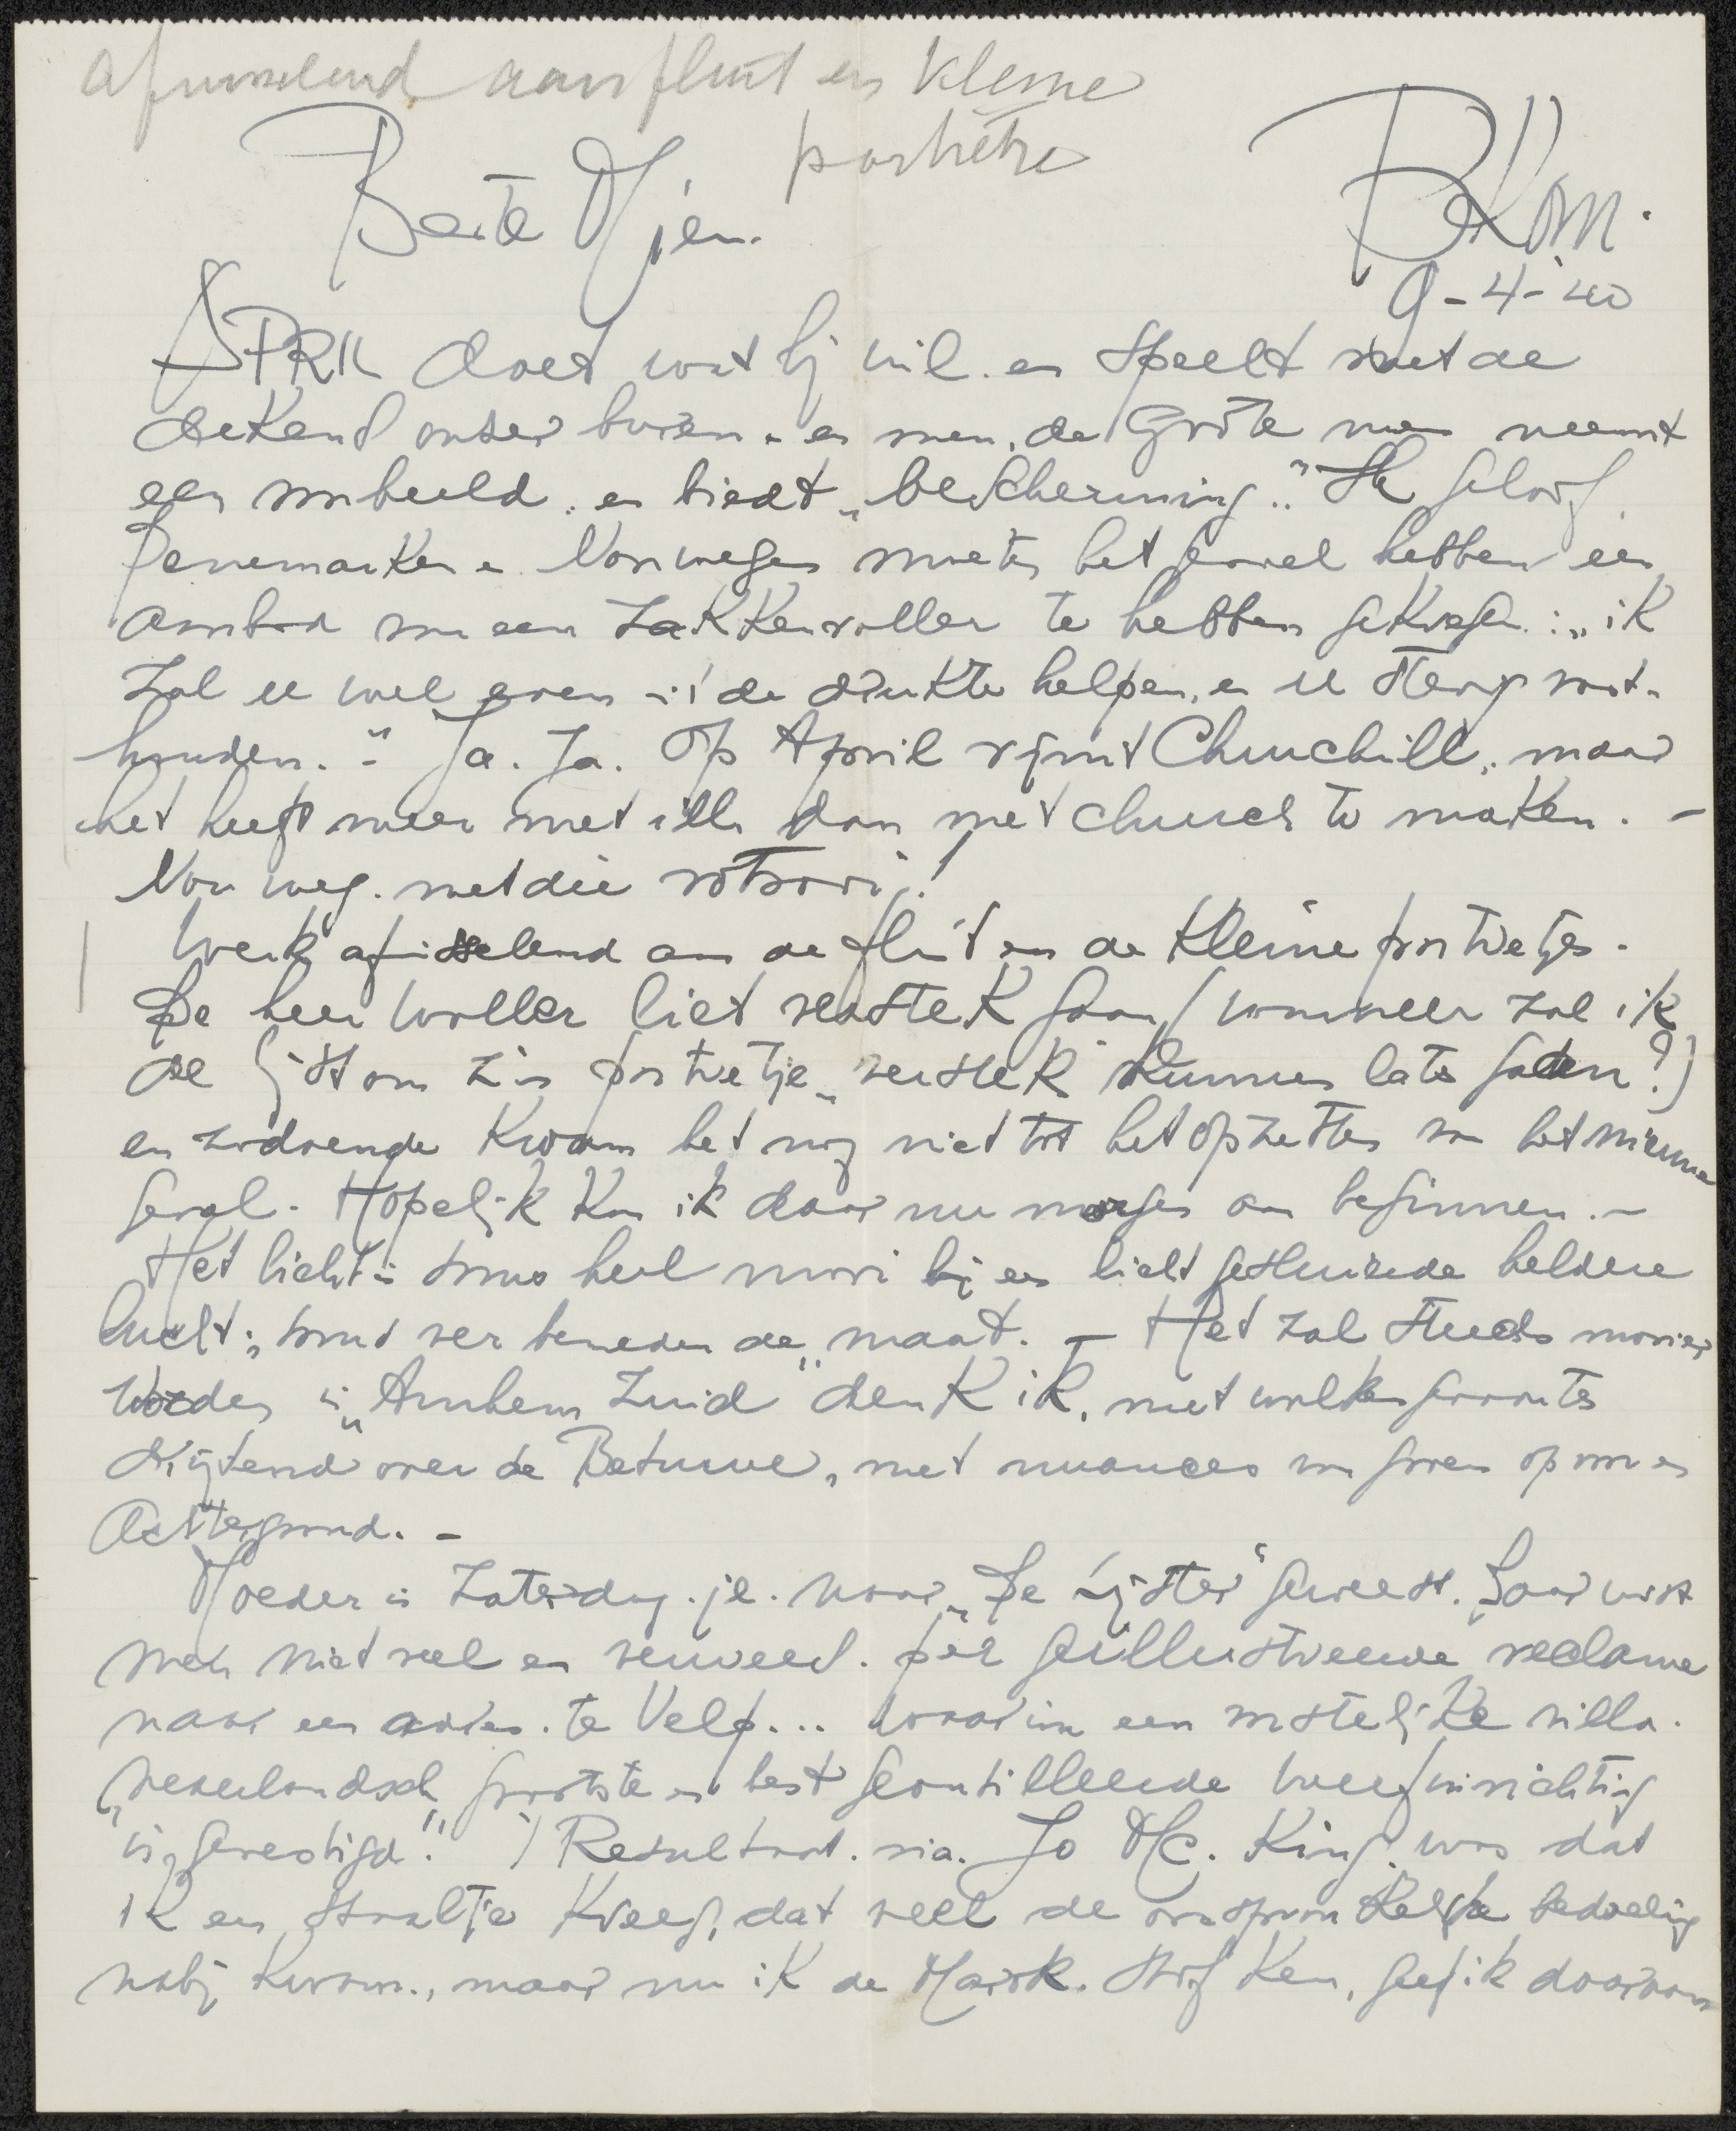 afwisselend aan fluit en kleine
portretten
Beste Mien.
BKOM.
9-4-'40
APRIL doet wat hij wil. en speelt met de
dekens onzer buren. en men, de Grote men neemt
een voorbeeld. en biedt "bescherming.." Ik geloof
Denemarken en Noorwegen moeten het gevoel hebben een
aanbod van een Zakkenroller te hebben gekregen: "ik
zal u wel even uit de drukte helpen, en u stevig vast-
houden." - Ja. Ja. Op April rijmt Churchill, maar
het heeft meer met ill dan met church te maken. -
Nou weg. met die rotzooi!
Werk afwisselend aan de fluit en de kleine portretjes.
De heer Woller liet verstek gaan (wanneer zal ik
de lijst om z'n portretje "verstek" kunnen laten gaan?)
en zodoende kwam het nog niet tot het opzetten van het nieuwe
geval. Hopelijk kan ik daar nu morgen aan beginnen. -
Het licht is soms heel mooi bij een licht gesluierde heldere
lucht; soms ver beneden de maat. - Het zal steeds mooier
worden in "Arnhem Zuid" denk ik, met wolken gevaarten
drijvend over de Betuwe, met nuances van groen op voor en
Achtergrond. -
Moeder is Zaterdag j.l. naar "De Lijster" geweest. Daar wist
men niet veel en verwees. per geïllustreerde reclame
naar een adres. te Velp... waarin een vorstelijke villa.
"Nederlandsch grootste en best geoutilleerde weefinrichting
"is gevestigd." ) Resultaat. via. Jo Mc. King. was dat
ik een staaltje kreeg, dat veel de oorspronkelijke bedoeling
nabij kwam., maar nu ik de Mark. stof ken, geef ik daaraan